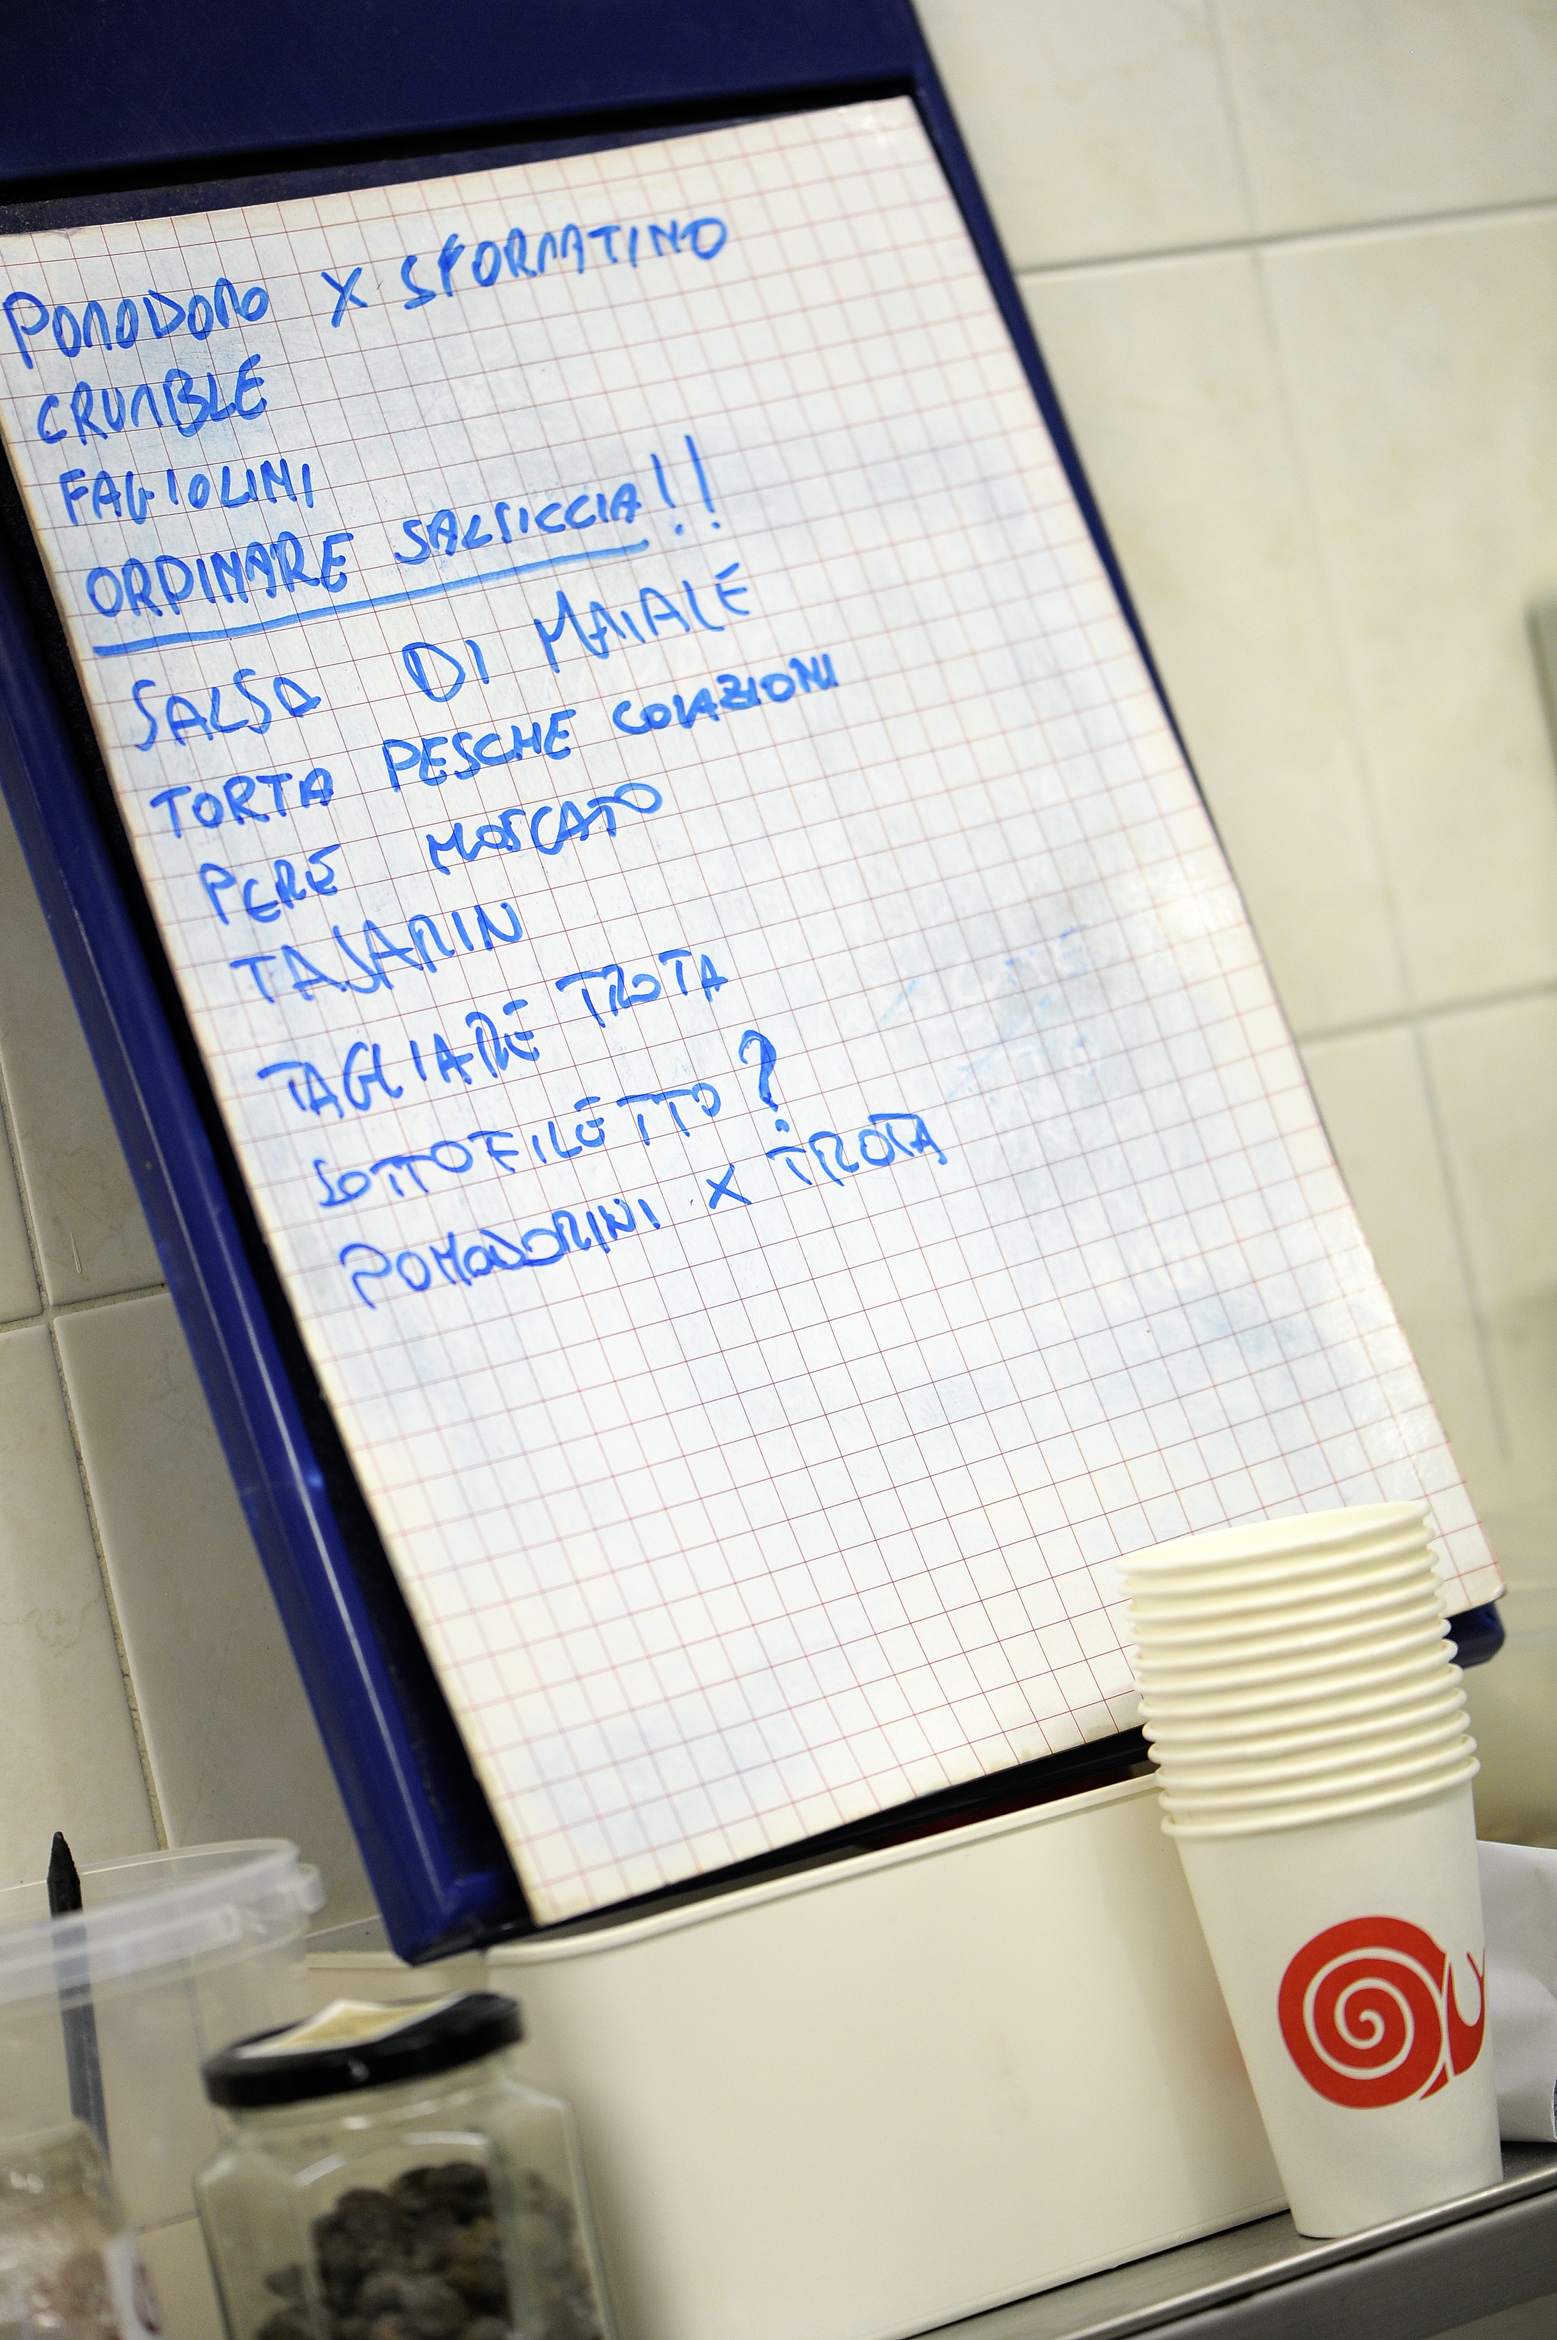 POMODORO X SFORMATINO
CRUMBLE
FAGIOLINI
ORDINARE SALSICCIA!!
SALSA DI MAIALE
TORTA PESCHE COLAZIONI
PERE MOSCATO
TAJARIN
TAGLIARE TROTA
SOTTOFILETTO?
POMODORINI X TROTA